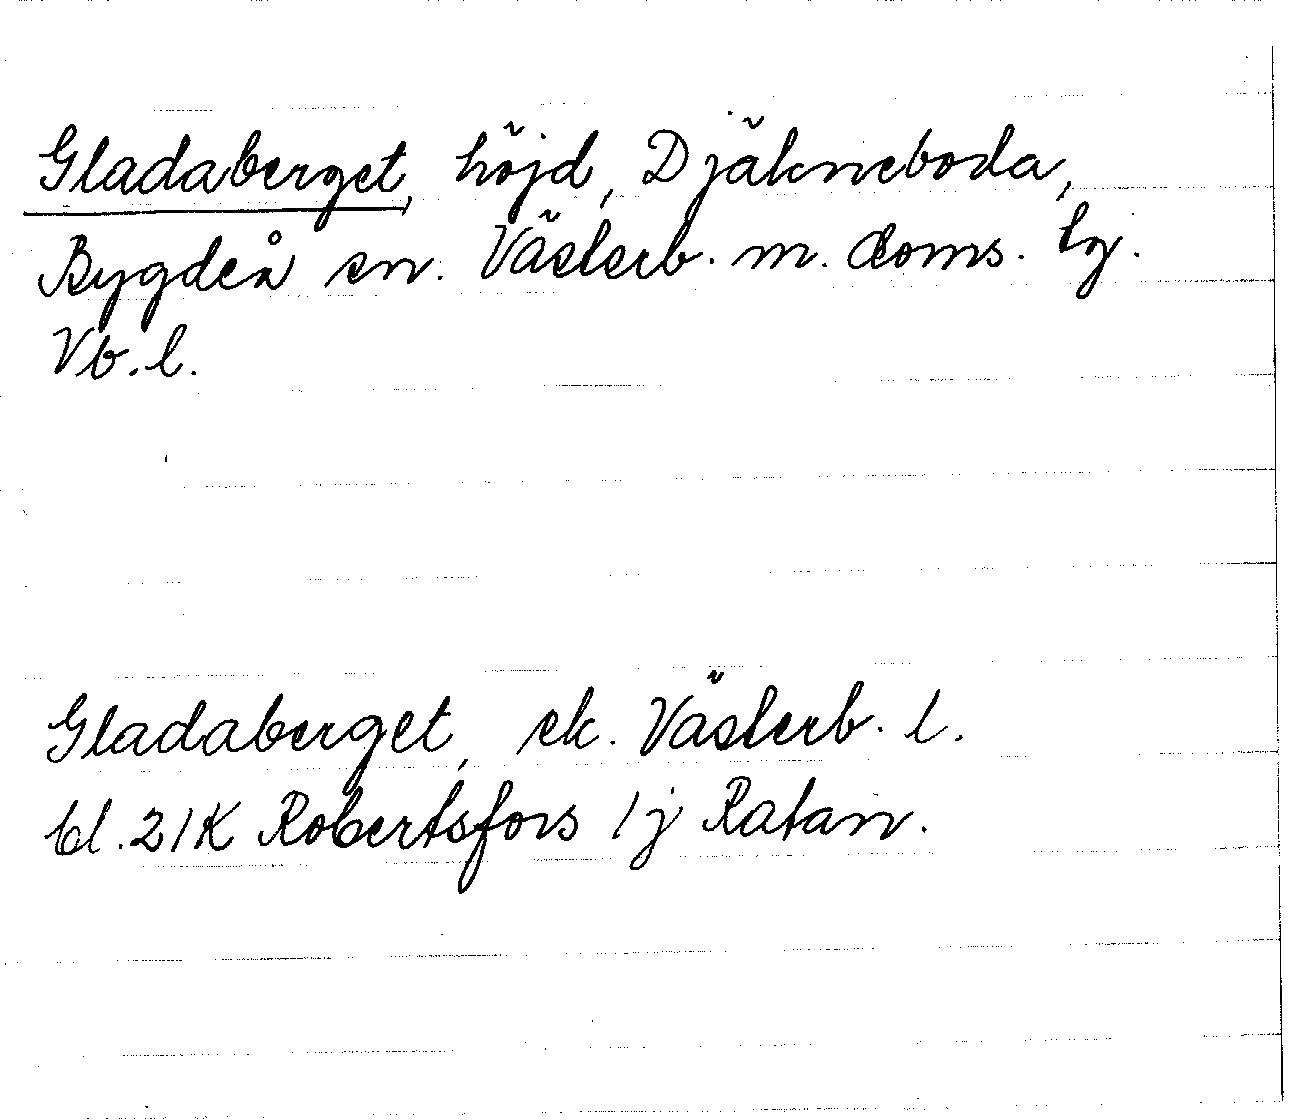 Gladaberget, höjd, Djäkneboda,
Bygdeå sn. Västerb. m. doms. tg.
Vb. l.
Gladaberget, ek. Västerb. l.
bl. 21K Robertsfors 1j Ratan.